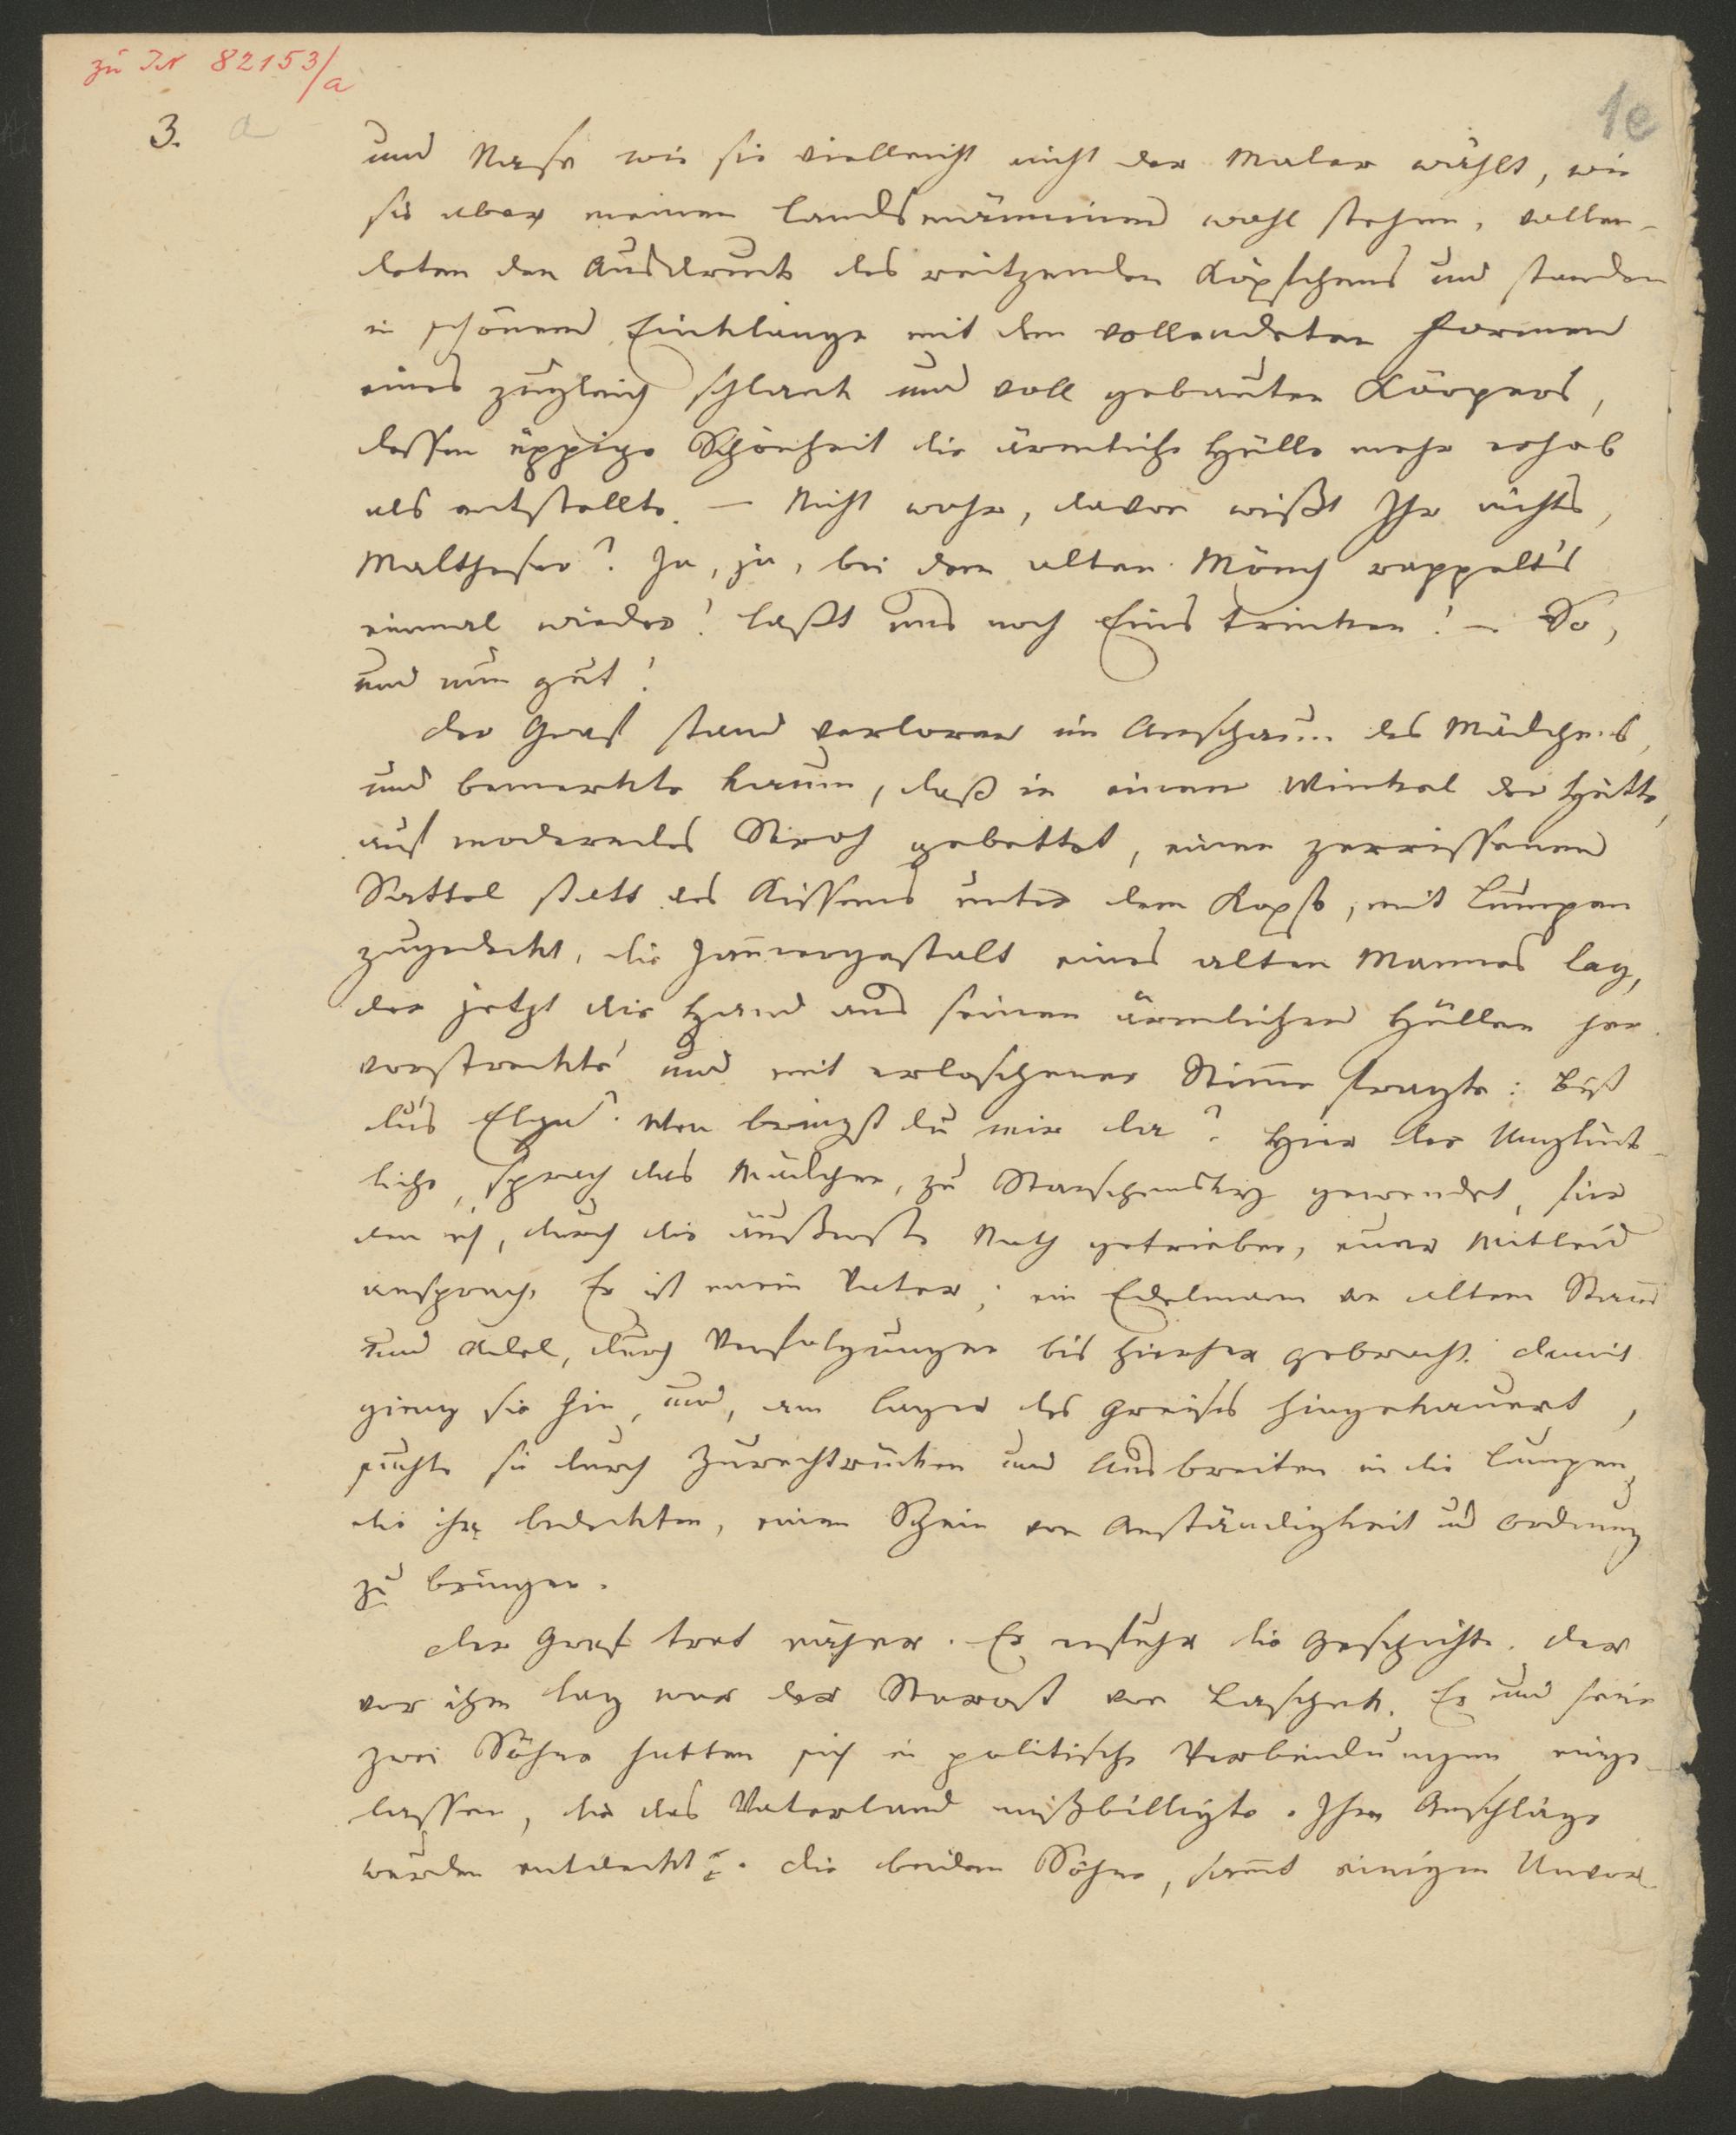 zu IN 82153/a
1e
3. a
und Nase wie sie vielleicht nicht der Maler wählt, wie
sie aber meinen Landsmänninen wohl stehen, vollen-
deten den Ausdruck des reitzenden Köpfchens und standen
in schönem Einklange mit den vollendeten Formen
eines zugleich schlank und voll gebauten Körpers,
dessen üppige Schönheit die ärmliche Hülle mehr erhob
als entstellte. – Nicht wahr, davon wißt Ihr nichts,
Maltheser? Ja, ja, bei dem alten Mönch rappelt's
einmal wieder! Laßt uns noch Eins trinken! – So,
und nun gut!
Der Graf stand verloren im Anschaun des Mädchens,
und bemerkte kaum, daß in einem Winkel der Hütte,
auf moderndes Stroh gebettet, einen zerrissenen
Sattel statt des Kissens unter dem Kopfe, mit Lumpen
zugedeckt, die Jammergestalt eines alten Mannes lag,
der jetzt die Hand aus seinen ärmlichen Hüllen her-
vorstreckte und mit erloschener Stimme fragte: Bist
du's Elga? Wen bringst du mir da? Hier der Unglück-
liche, sprach das Mädchen, zu Starschensky gewendet, für
den ich, durch die äußerste Noth getrieben, euer Mitleid
ansprach. Er ist mein Vater, ein Edelmann von altem Stamm
und Adel, durch Verfolgungen bis hierher gebracht. Damit
gieng sie hin, und, am Lager des Greises hingekauert,
suchte sie durch Zurechtrücken und Ausbreiten in die Lumpen,
die ihn bedeckten, einen Schein von Anständigkeit und Ordnung
zu bringen.
Der Graf trat näher. Er erfuhr die Geschichte. Der
vor ihm lag war der Starost von Laschek. Er und seine
zwei Söhne hatten sich in politische Verbindungen einge-
lassen, die das Vaterland mißbilligte. Ihre Anschläge
wurden entdeckt. Die beiden Söhne, sammt einigen Unvor-